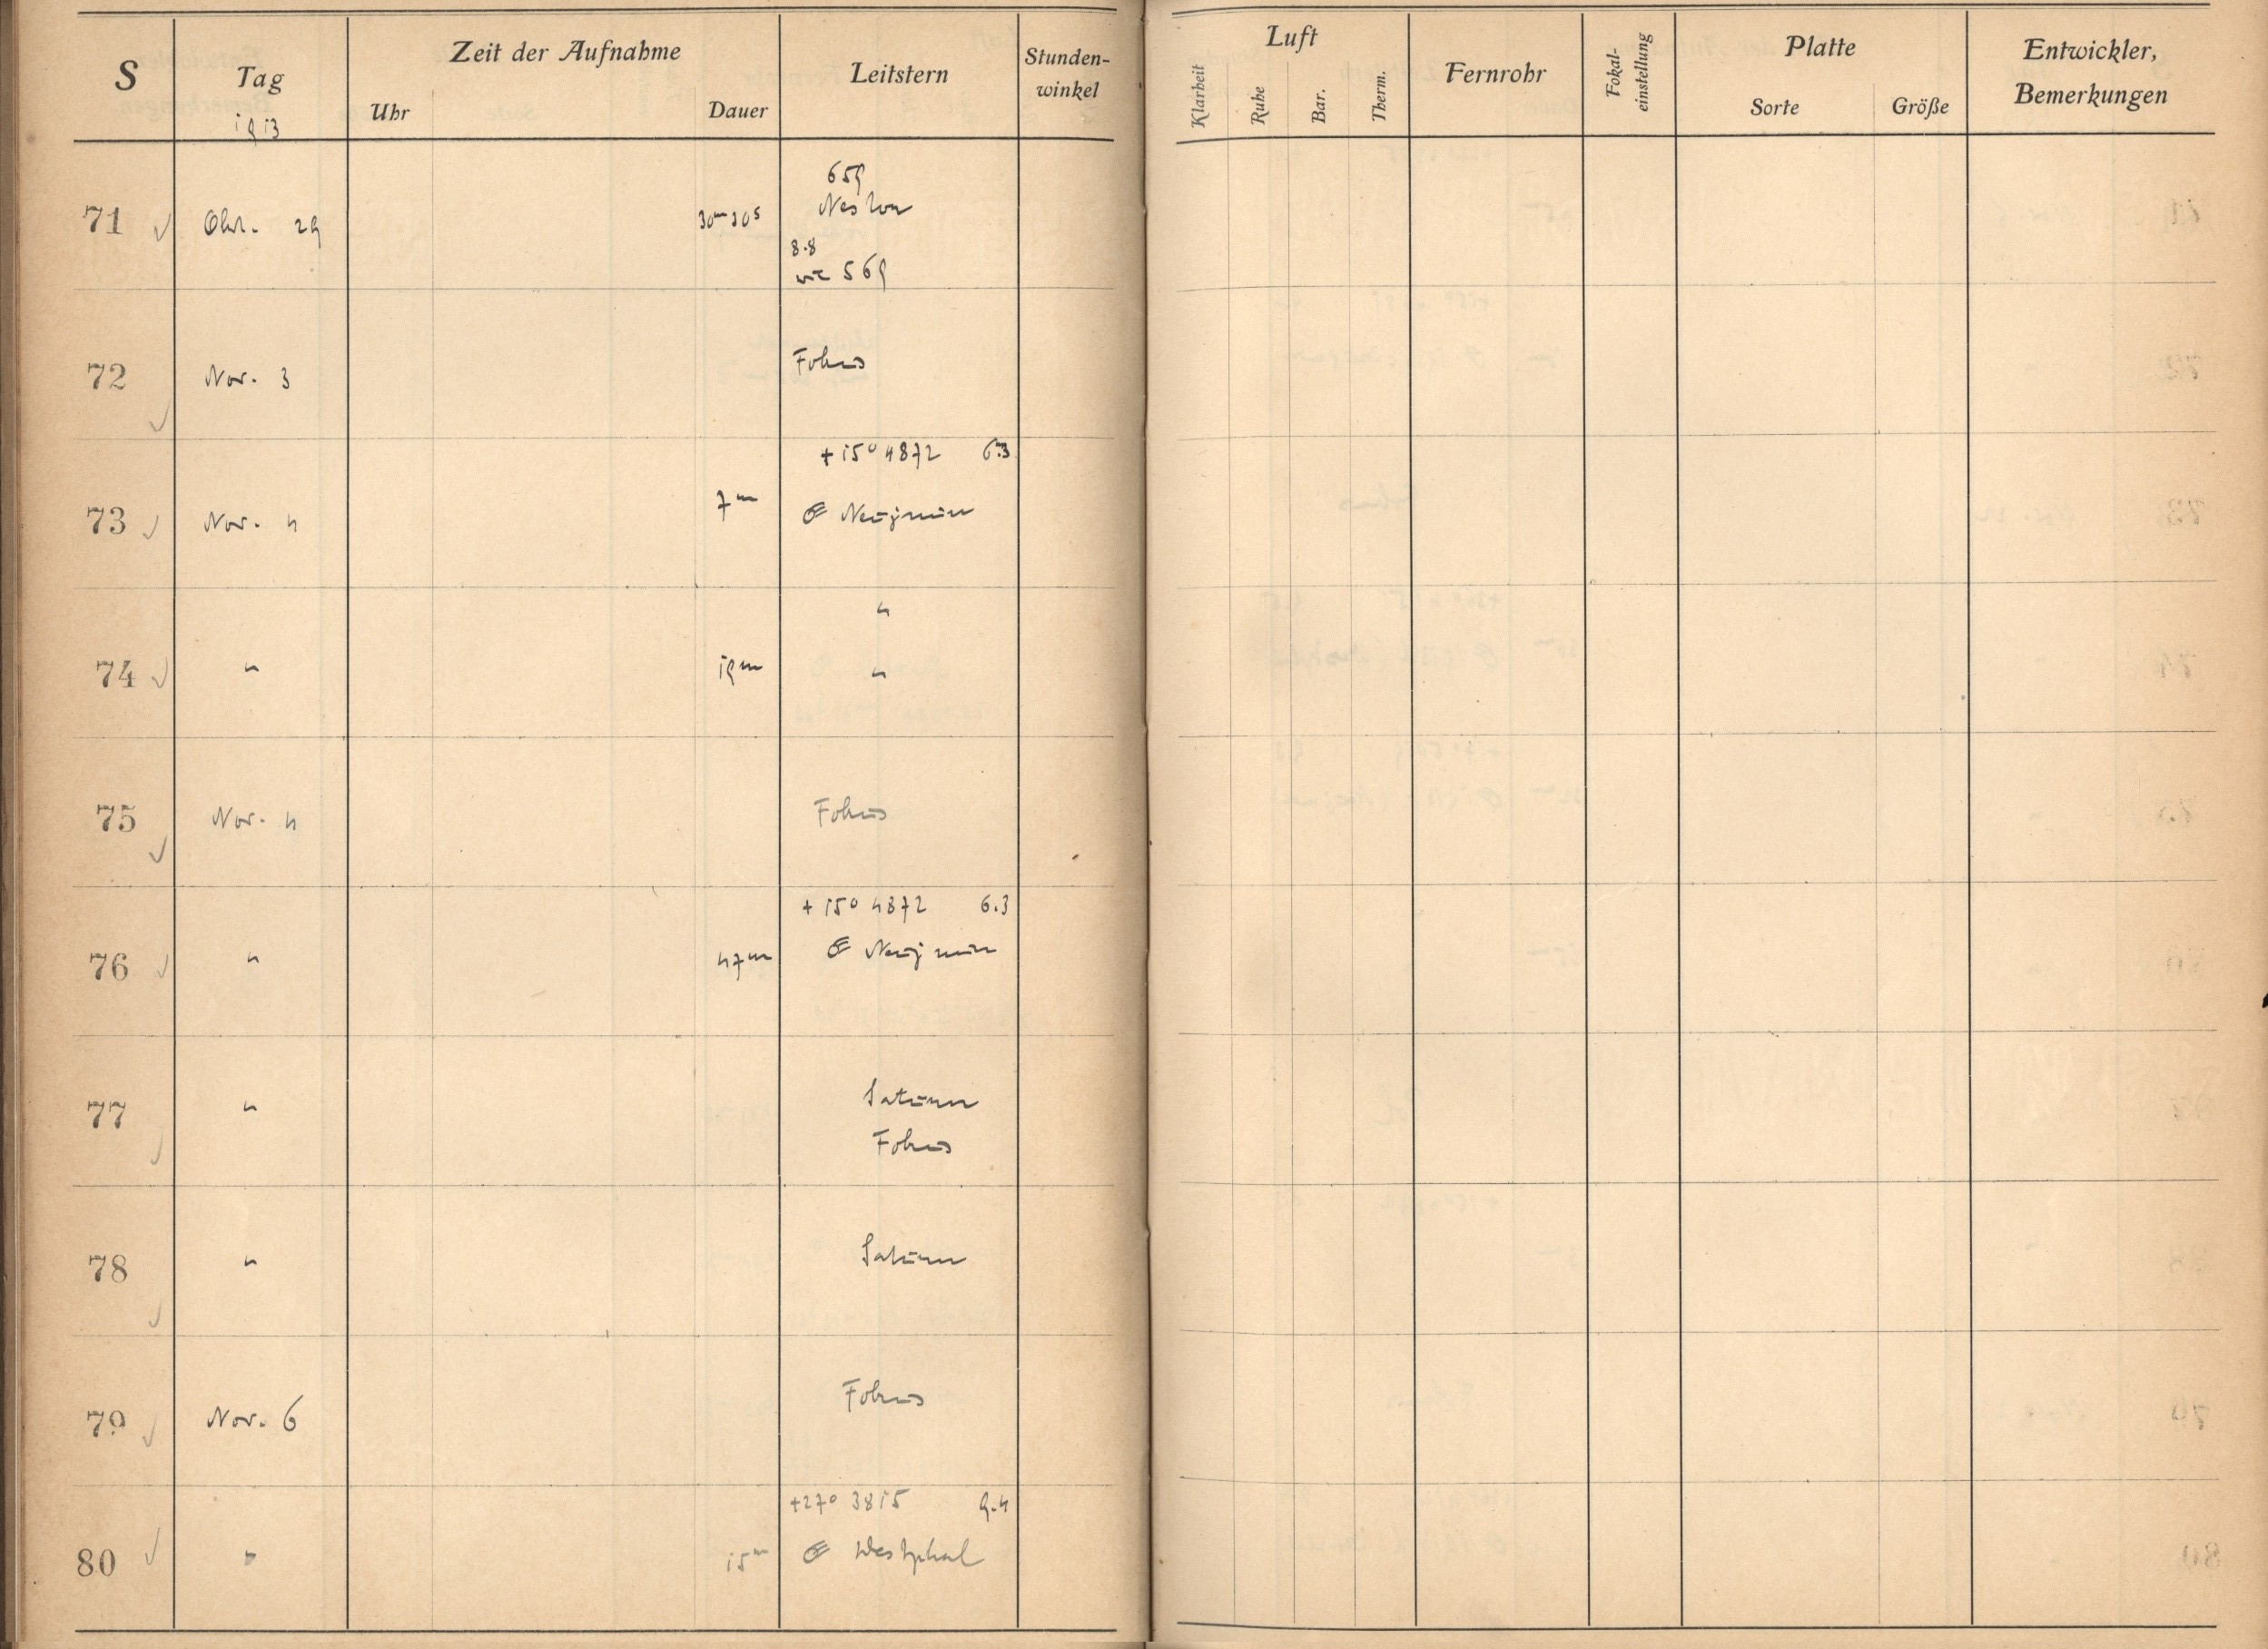 S Tag Zeit der Aufnahme Leitstern Stunden-
winkel
1913 Uhr Dauer
Luft Fernrohr Fokal-
einstellung Platte Entwickler,
Bemerkungen
Klarheit Ruhe Bar. Therm. Sorte Größe
659
71 Okt. 29 30m 30s Nestor
8.8
569
72 Nov. 3 Fokus
+15° 4872 6m.3
73 Nov. 4 7m ☄ Neujmin
"
74 " 19m "
75 Nov. 4 Fokus
+15° 4872 6.3
76 " 47m ☄ Neujmin
77 " Saturn
Fokus
78 " Saturn
79 Nov. 6 Fokus
+27° 3815 9.4
80 " 15m ☄ Westphal